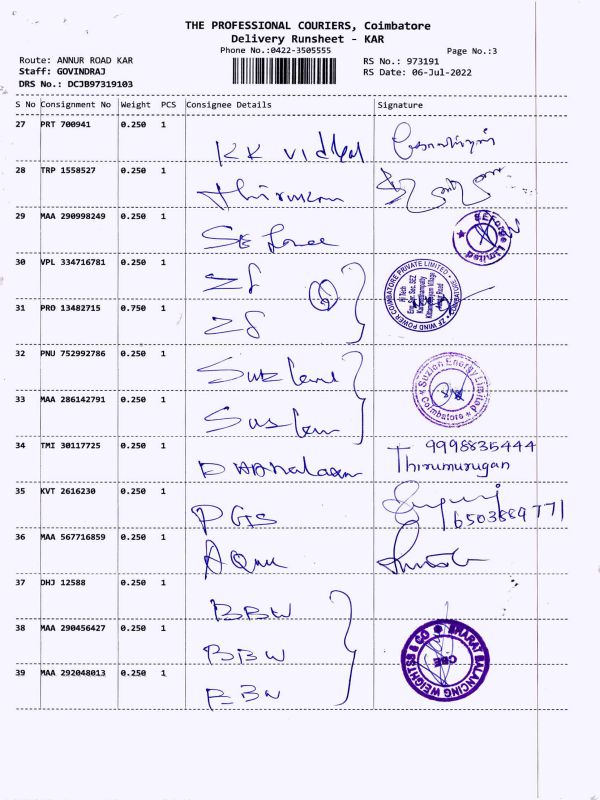 THE PROFESSIONAL COURIERS, Coimbatore
Delivery Runsheet - KAR
Phone No.:0422-3505555
Page No.:3
Route: ANNUR ROAD KAR
RS No.: 973191
Staff: GOVINDRAJ
RS Date: 06-Jul-2022
DRS No.: DCJB97319103
S No Consignment No Weight PCS Consignee Details Signature
27 PRT 700941 0.250 1
KK vidhal
28 TRP 1558527 0.250 1
29 MAA 290998249 0.250 1
Limited
30 VPL 334716781 0.250 1
ZF
ZF WIND POWER COIMBATORE PRIVATE LIMITED
Hi Tech
31 PRO 13482715 0.750 1
ZF
32 PNU 752992786 0.250 1
Suzlon Energy Limited
Coimbatore
33 MAA 286142791 0.250 1
34 TMI 30117725 0.250 1
9998835444
Dhanalaxmi Thirumurugan
35 KVT 2616230 0.250 1
PGS
36 MAA 567716859 0.250 1
37 DHJ 12588 0.250 1
BBW
38 MAA 290456427 0.250 1
BBW
BHARAT BALANCING WEIGHTSS & CO
CBE
39 MAA 292048013 0.250 1
BBW